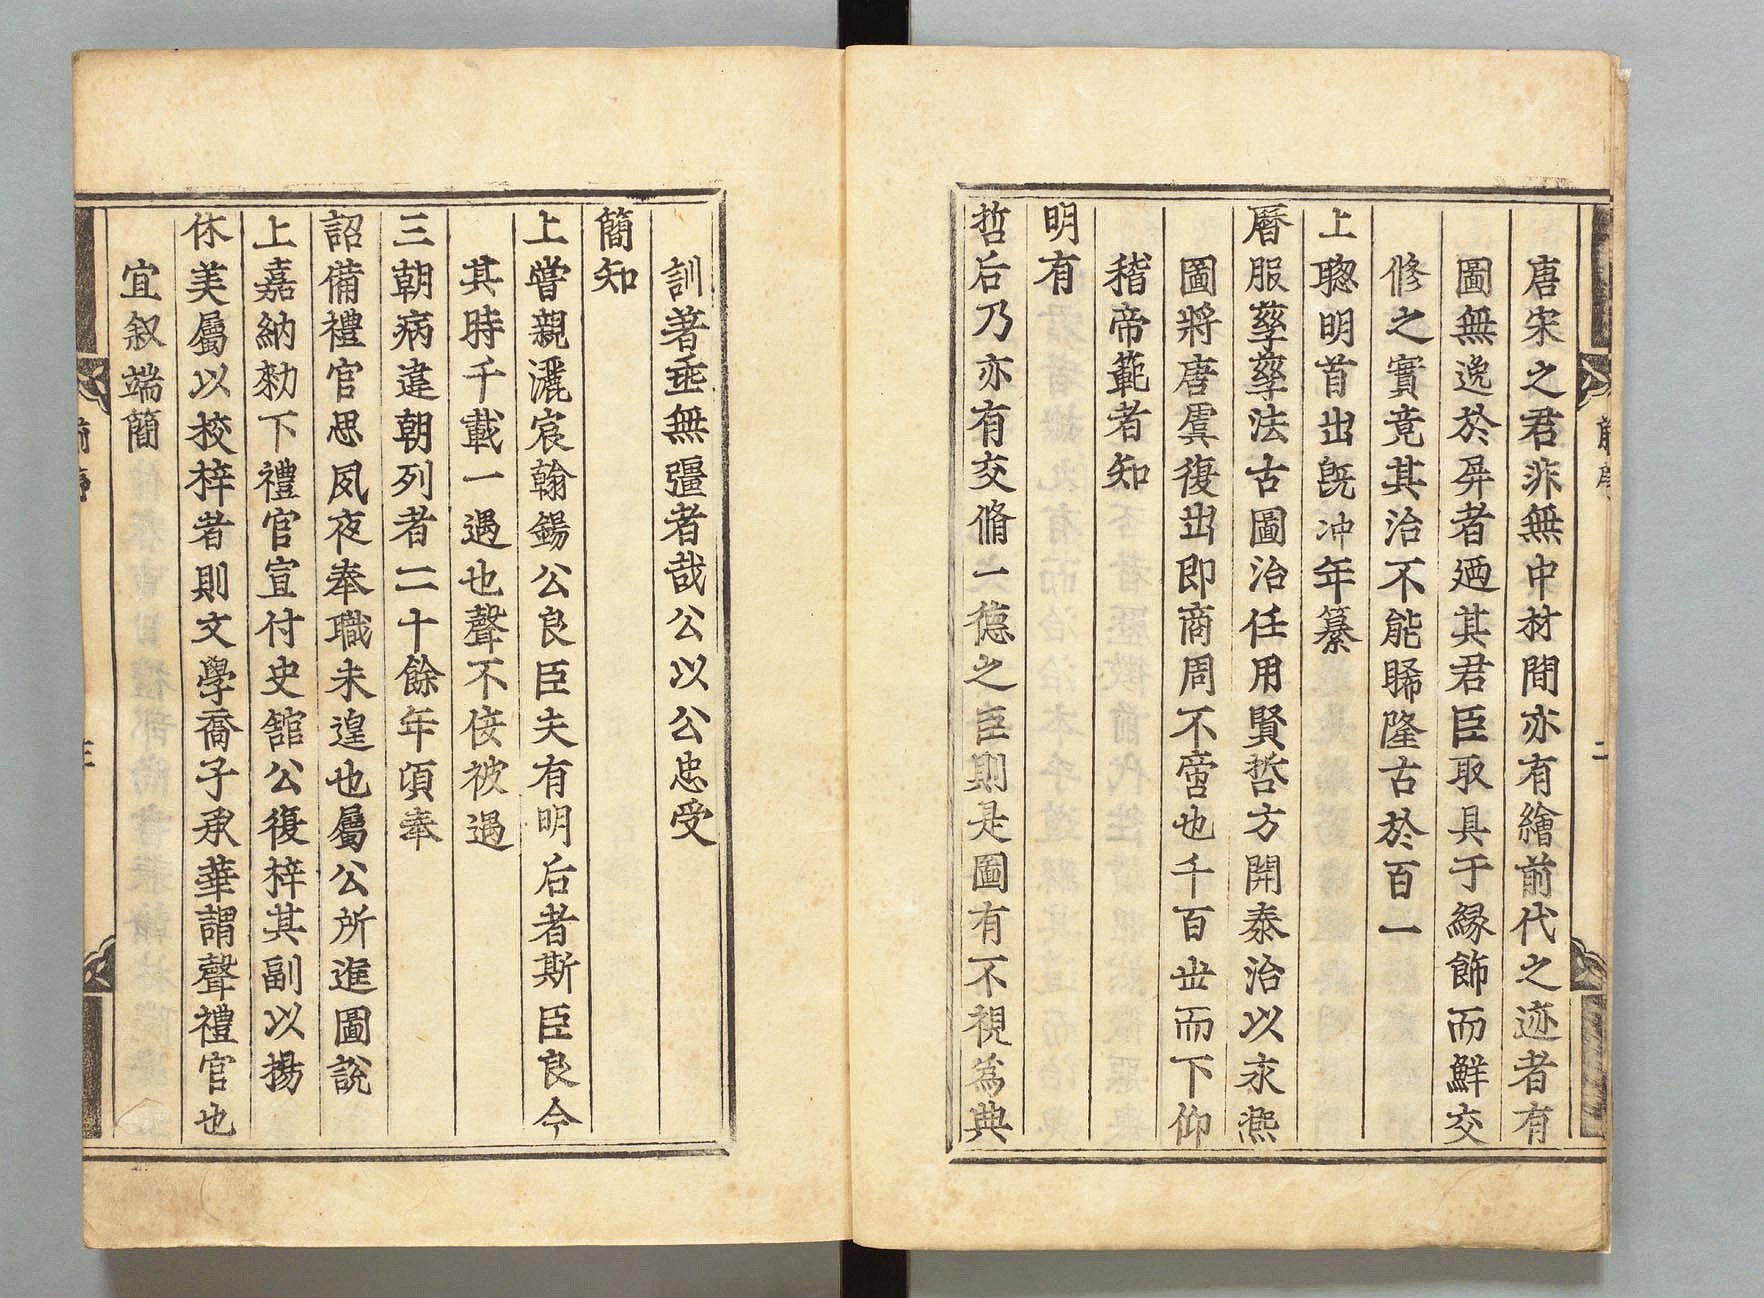 唐宋之君非無中材間亦有繪前代之迹者有
圖無逸於屏者廼其君臣取具于緣飾而鮮交
修之實竟其治不能睎隆古於百一
上聰明首出旣冲年纂
曆服孳孳法古圖治任用賢哲方開泰治以求熙
圖將唐虞復出即商周不啻也千百世而下仰
稽帝範者知
明有
哲后乃亦有交脩一德之臣則是圖有不視為典
訓著垂無疆者哉公以公忠受
簡知
上嘗親灑宸翰錫公良臣夫有明后者斯臣良今
其時千載一遇也聲不佞被遇
三朝病違朝列者二十餘年頃奉
詔備禮官思夙夜奉職未遑也屬公所進圖說
上嘉納勑下禮官宣付史館公復梓其副以揚
休美屬以挍梓者則文學喬子承華謂聲禮官也
宜叙端簡